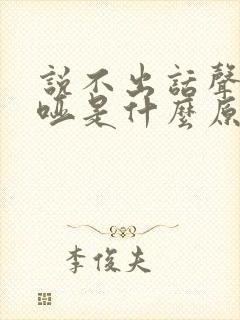 說不出話聲
啞是什麼原
李俊夫